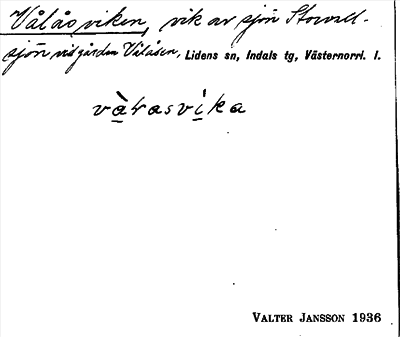 Vålåsviken, vik av sjön Storvåd-
sjön vid gården Vålåsen, Lidens sn, Indals tg, Västernorrl. l.
và̱ɽasvi̱ka
VALTER JANSSON 1936